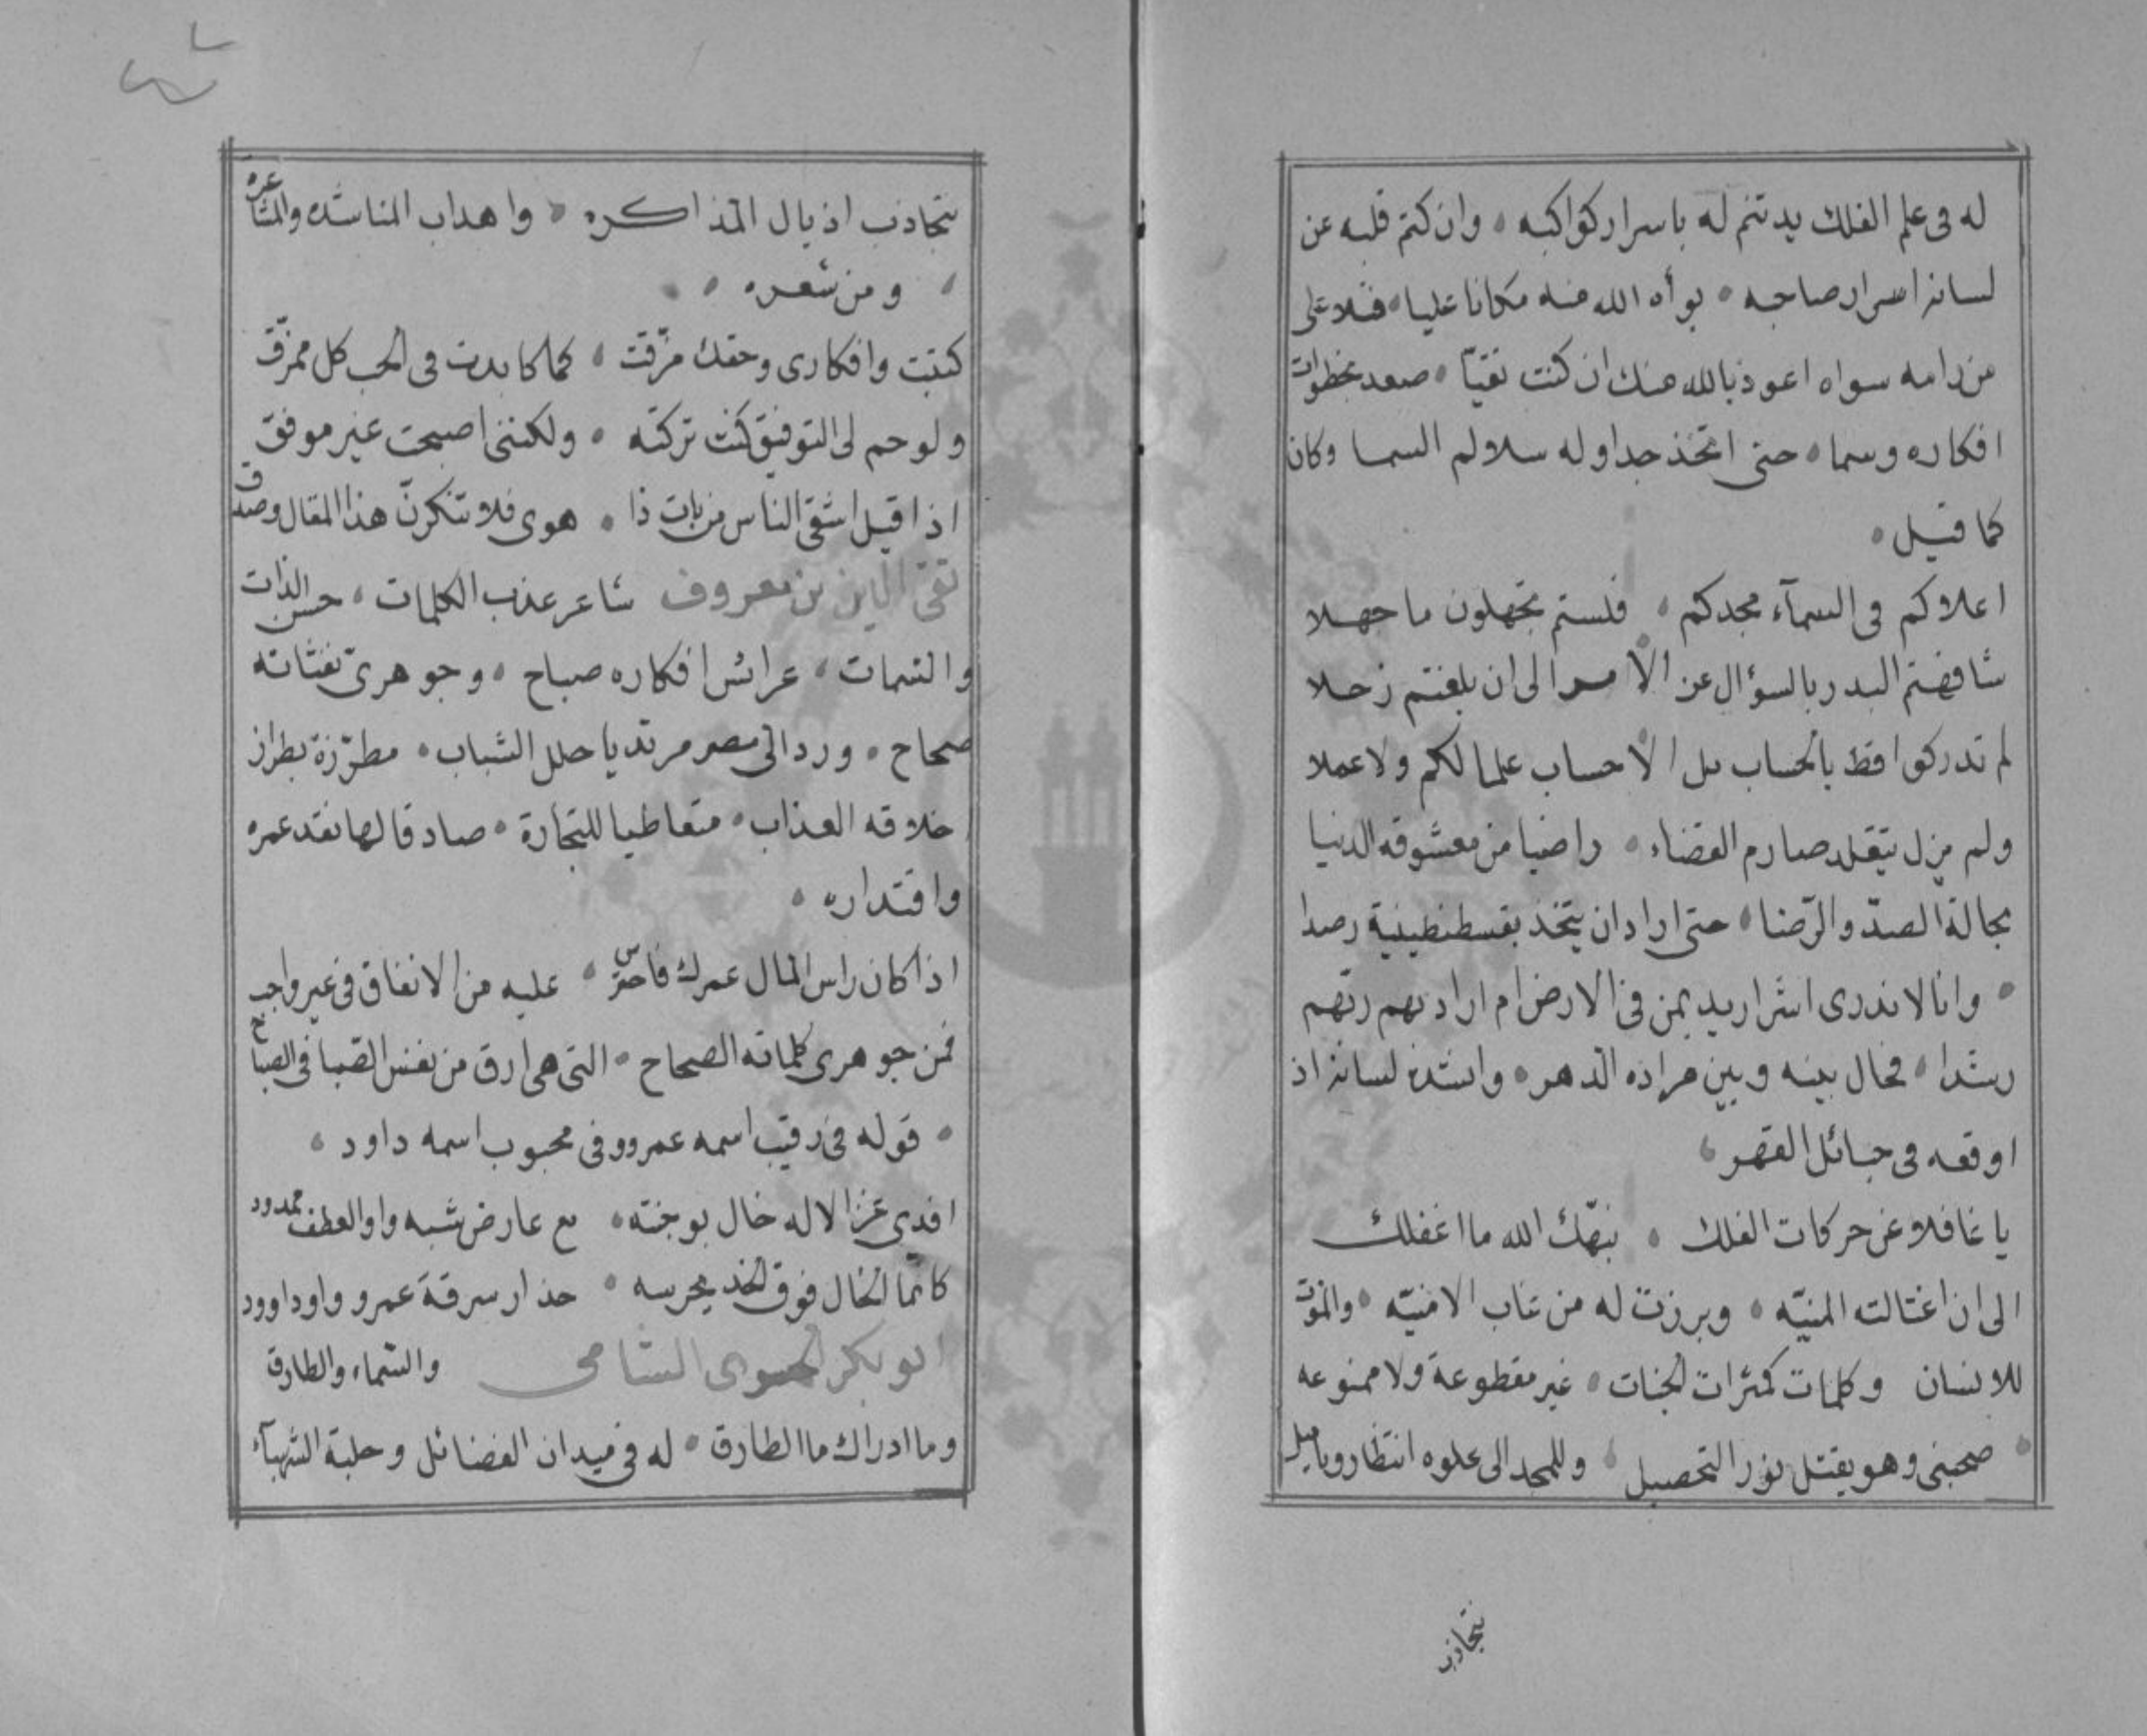 له فى علم الفلك يد تنم له باسرار كواكبه ، وان كتم قلبه عن
لسانه اسرار صاحبه ، بوأه الله منه مكانا عليا ، فتلا على
من رامه سواه اعوذ بالله منك ان كنت تقيّا ، صعد بخطوات
افكاره وسما ، حتى اتخذ جداوله سلالم السما وكان
كما قيل ،
اعلاكم فى السمآء مجدكم ، فلستم تجهلون ما جهلا
شافهتم البدر بالسؤال عن الامر الى ان بلغتم زحلا
لم تدركوا قط بالحساب بل الاحساب علما لكم ولا عملا
ولم يزل يتقلد صارم القضاء ، راضيا من معشوقه الدنيا
بحالة الصدّ والرّضا ، حتى اراد ان يتخذ بقسطنطينية رصدا
، وانا لا ندرى اشر اريد بمن فى الارض ام اراد بهم ربّهم
رشدا ، فحال بينه وبين مراده الدهر ، وانشده لسانه اذ
اوقعه فى حبائل القهر ،
يا غافلا عن حركات الفلك ، نبّهك الله ما اغفلك
الى ان اغتالته المنيّه ، وبرزت له من غاب الامنيّه ، والموت
للانسان وكلمات كثمرات الجنات ، غير مقطوعة ولا ممنوعه
، صحبنى وهو يقتبل نور التحصيل ، وللمجد الى علوه انتظار وتاميل
نتجاذب
نتجاذب اذيال المذاكره ، واهداب المناشده والمشاعره
، ومن شعره ،
كتبت وافكارى وحقك مزّقت ، كما كابدت فى الحب كل ممزّق
ولو حم لى التوفيق كنت تركته ، ولكننى اصبحت غير موفق
اذا قيل اشقى الناس من بات ذا ، هوى فلا تنكرنّ هذا المقال وصدق
تقىّ الدين بن معروف شاعر عذب الكلمات ، حسن الذات
والسمات ، عرائس افكاره صباح ، وجوهرىّ نفثاته
صحاح ، ورد الى مصر مرتديا حلل الشباب ، مطرّزة بطراز
اخلاقه العذاب ، متعاطيا للتجارة ، صادقا لها نقد عمره
واقتداره ،
اذا كان راس المال عمرك فاحترس ، عليه من الانفاق فى غير واجب
فمن جوهرى كلماته الصحاح ، التى هى ارق من نفس الصّبا فى الصباح
، قوله فى رقيب اسمه عمرو وفى محبوب اسمه داود ،
افدى غزالا له خال بوجنته ، مع عارض شبه واو العطف ممدود
كانما الخال فوق الخد يحرسه ، حذار سرقة عمرو واو داوود
ابو بكر الشامى والسّماء والطارق
وما ادراك ما الطارق ، له فى ميدان الفضائل وحلبة الشهبآء